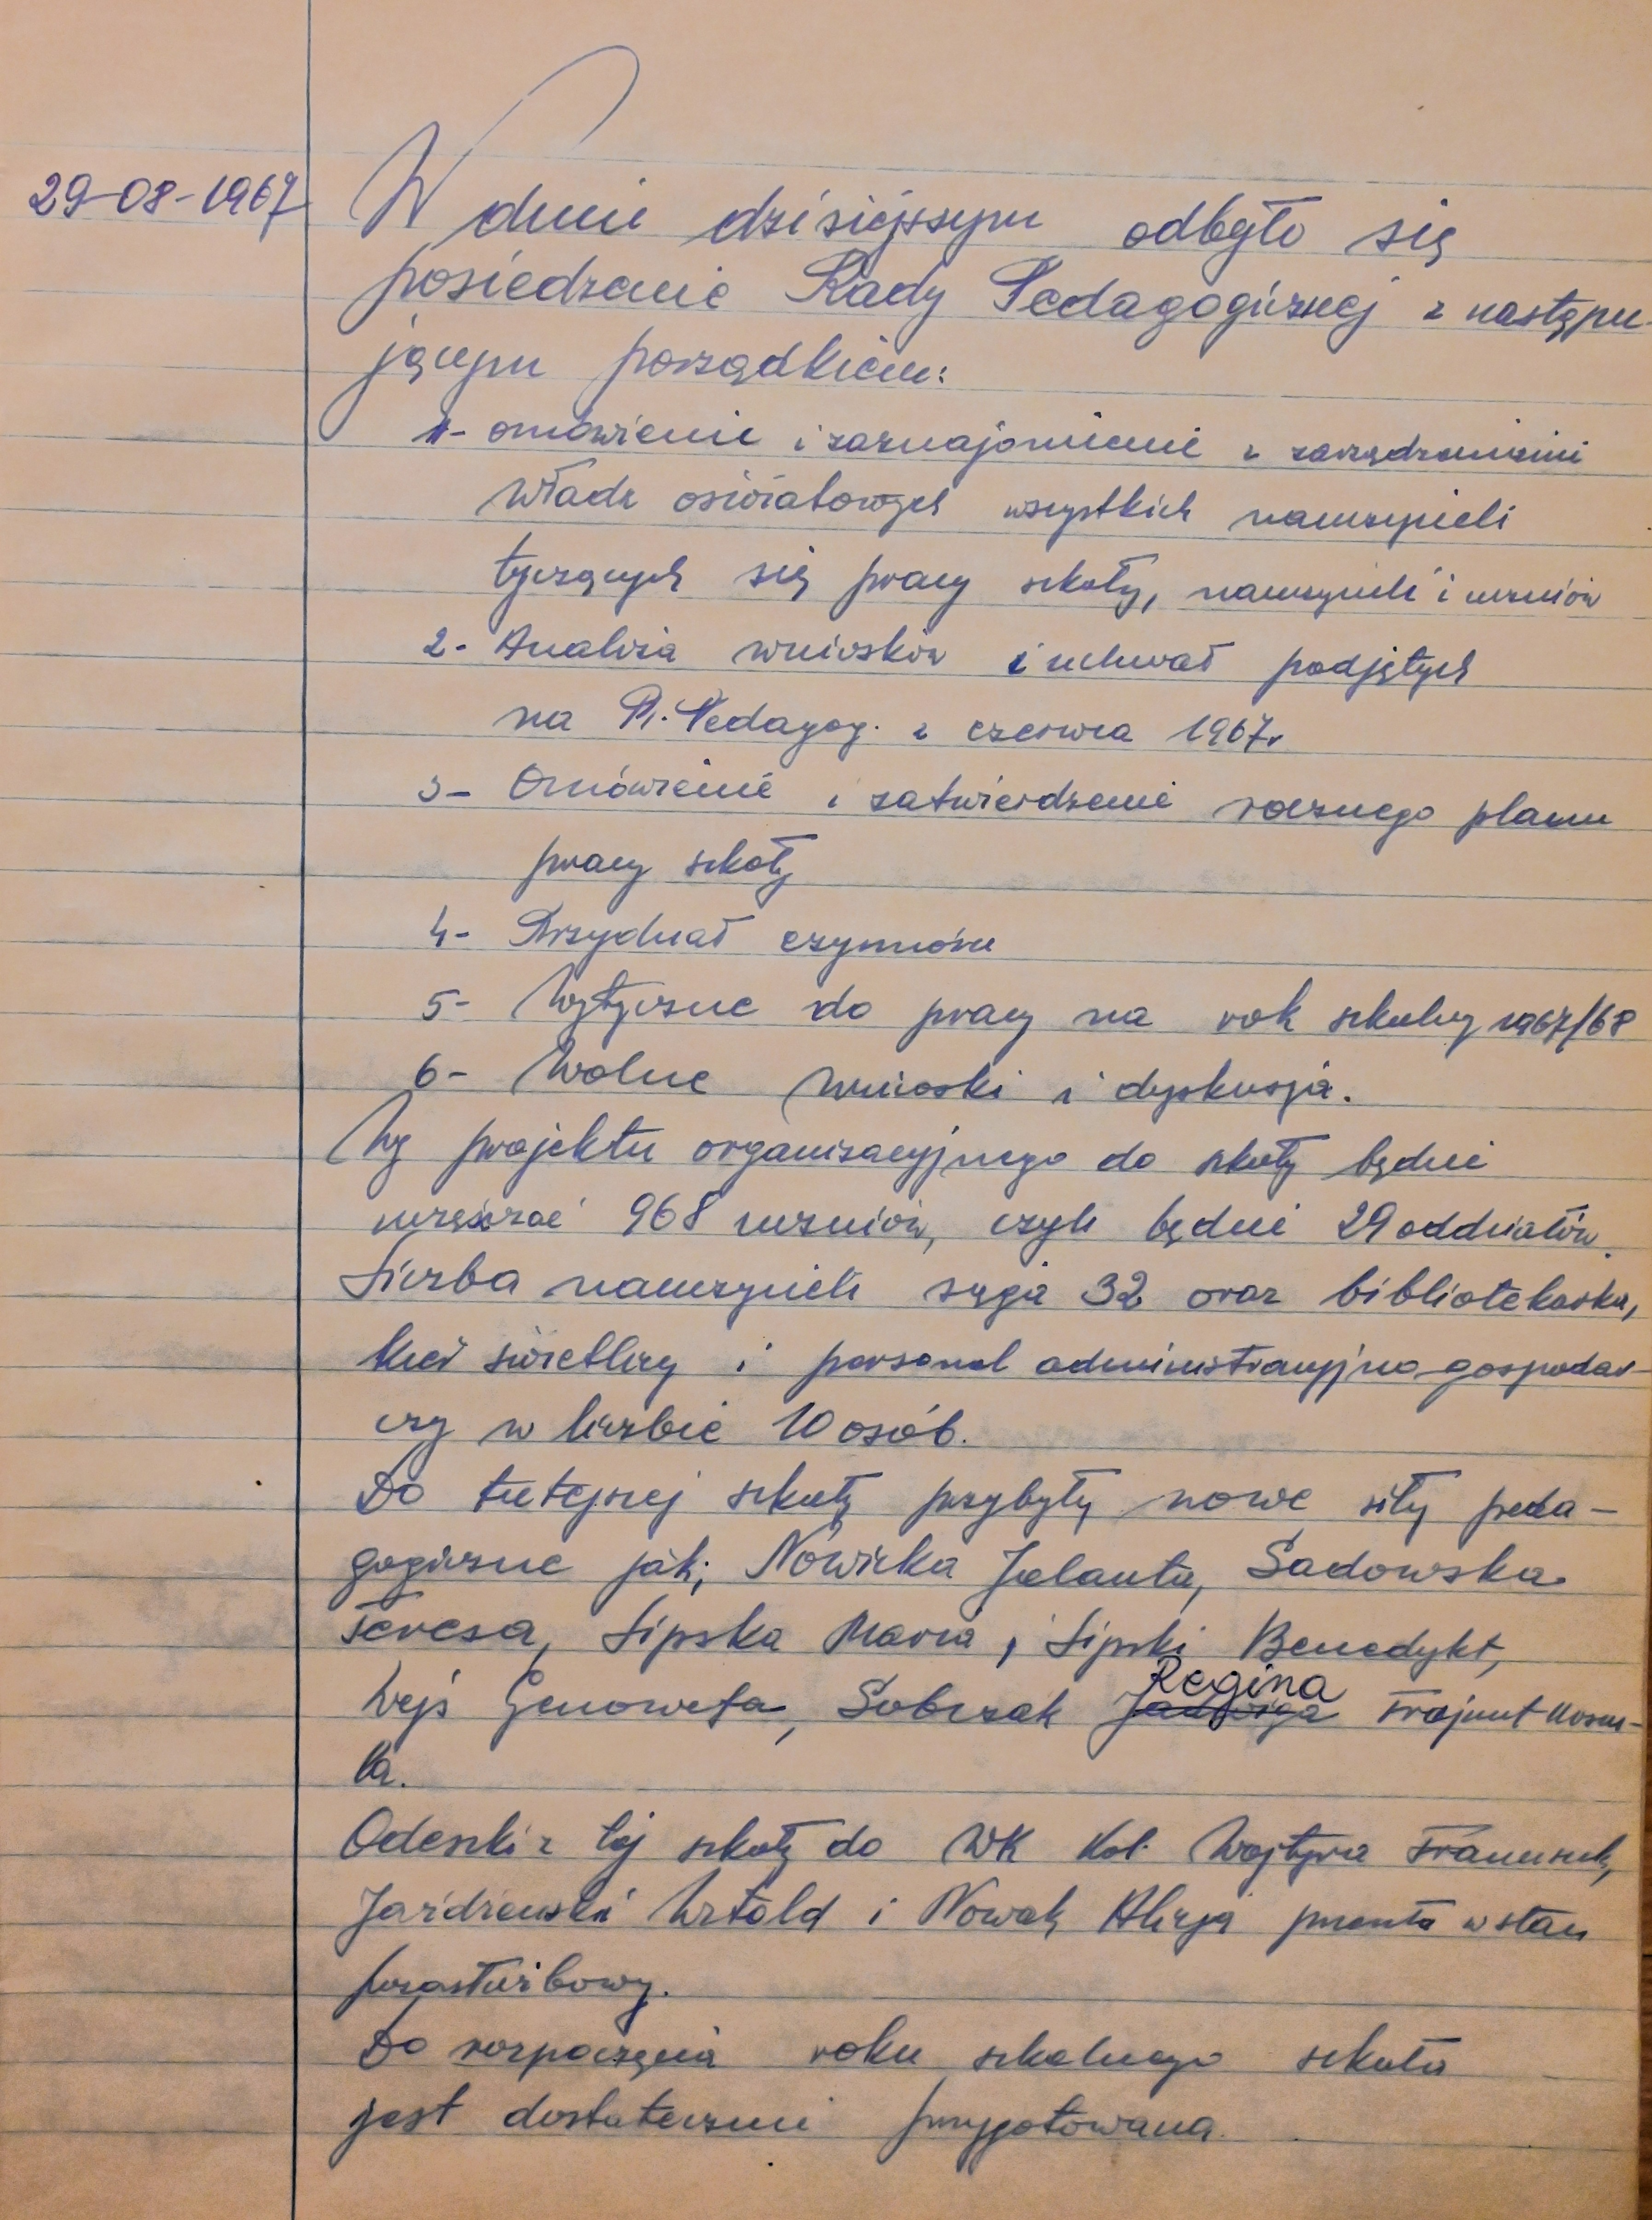 29-08-1967
W dniu dzisiejszym odbyło się
posiedzenie Rady Pedagogicznej z następu-
jącym porządkiem:
1- omówienie i zaznajomienie z zarządzeniami
władz oświatowych wszystkich nauczycieli
tyczących się pracy szkoły, nauczycieli i uczniów
2- Analiza wniosków i uchwał podjętych
na R. Pedagog. z czerwca 1967r
3- Omówienie i zatwierdzenie rocznego planu
pracy szkoły
4- Przydział czynności
5- Wytyczne do pracy na rok szkolny 1967/68
6- Wolne wnioski i dyskusja.
Wg projektu organizacyjnego do szkoły będzie
uczęszczać 968 uczniów, czyli będzie 29 oddziałów.
Liczba nauczycieli sięga 32 oraz bibliotekarka,
kier świetlicy i personel administracyjno-gospodar-
czy w liczbie 10 osób.
Do tutejszej szkoły przybyły nowe siły peda-
gogiczne jak; Nowicka Jolanta, Sadowska
Teresa, Lipska Maria, Lipski Benedykt,
Wejs Genowefa, Sobczak Jadwiga Regina Trajnut
Odeszli z tej szkoły do WK Kol. Wojtyra Franciszek,
Witold i Nowak Alicja przeszła w stan
pozasłużbowy.
Do rozpoczęcia roku szkolnego szkoła
jest dostatecznie przygotowana.